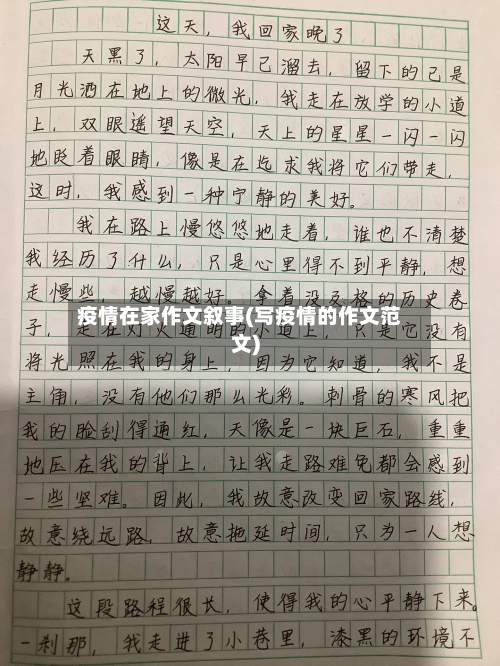 这天，我回家晚了
天黑了，太阳早已溜去，留下的已是
月光洒在地上的微光，我走在放学的小道
上，双眼遥望天空，天上的星星一闪一闪
地眨着眼睛，像是在迄求我将它们带走，
这时，我感到一种宁静的美好。
我在路上慢悠悠地走着，谁也不清楚
我经历了什么，只是心里得不到平静，想
走慢些，越慢越好。拿着没及格的历史卷
子，走在灯火通明的小道上，只是它没有
疫情在家作文叙事(写疫情的作文范
文)
将光照在我的身上，因为它知道，我不是
主角，没有他们那么光彩。刺骨的寒风把
我的脸刮得通红，天像是一块巨石，重重
地压在我的背上，让我走路难免都会感到
一些坚难。因此，我故意改变回家路线，
故意绕远路，故意拖延时间，只为一人想
静静。
这段路程很长，使得我的心平静下来。
一刹那，我走进了小巷里，漆黑的环境不